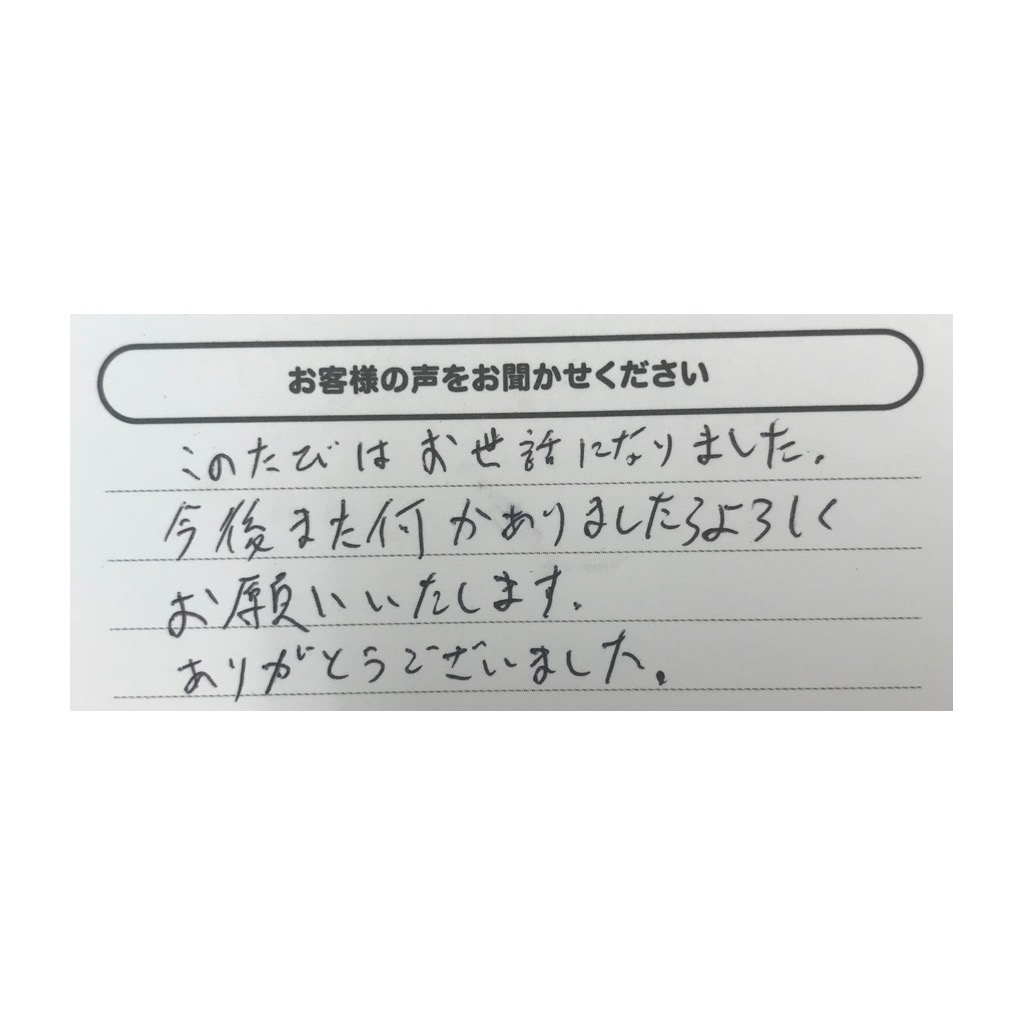 お客様の声をお聞かせください
このたびはお世話になりました。
今後また何かありましたらよろしく
お願いいたします。
ありがとうございました。